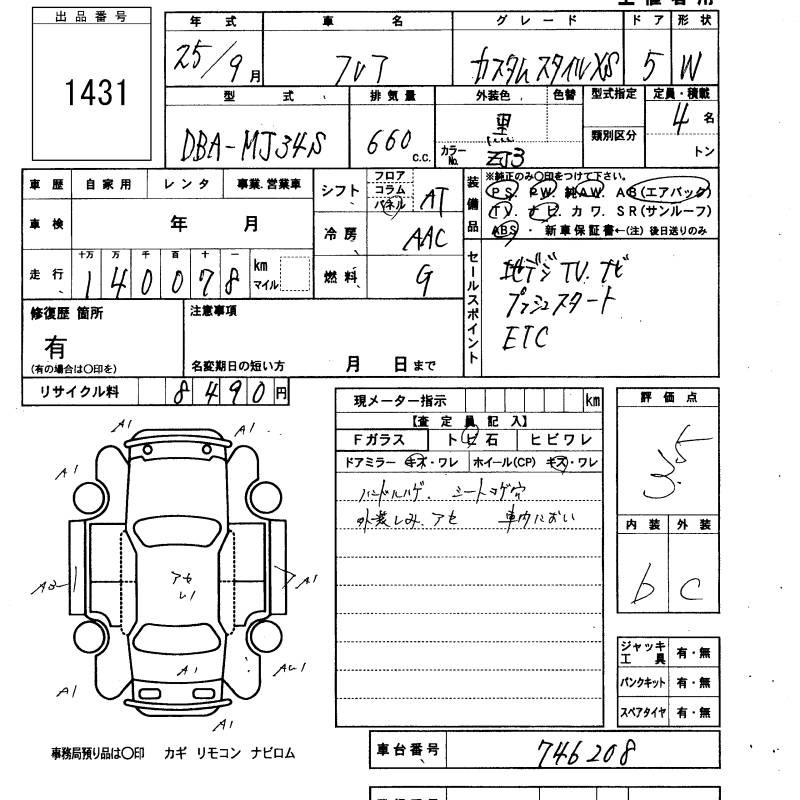 出品番号
1431
年式 車名 グレード ドア 形状
25/9月 フレア カスタムスタイルXS 5 W
型式 排気量 外装色 色替 型式指定 定員・積載
DBA-MJ34S 660 c.c. 黒 カラーNo. ZJ3 類別区分 4名
トン
車歴 自家用 レンタ 事業.営業車
車検 年 月
走行 十万 万 千 百 十 一
140078 km マイル
シフト フロア コラム パネル AT
冷房 AAC
燃料 G
装備品
※純正のみ○印をつけて下さい。
PS. PW. 純AW. AB(エアバック)
TV. ナビ. カワ. SR(サンルーフ)
ABS ・ 新車保証書←(注) 後日送りのみ
セールスポイント
地デジTV.ナビ
プッシュスタート
ETC
修復歴 箇所
有
(有の場合は○印を)
注意事項
名変期日の短い方 月 日まで
リサイクル料 8490円
現メーター指示 km
【査定員記入】
Fガラス トビ石 ヒビワレ
ドアミラー キズ・ワレ ホイール(CP) キズ・ワレ
ハンドルハゲ. シートコゲ穴
外装しみ.アセ 車内におい
評価点
3.5
内装 外装
b c
ジャッキ工具 有・無
パンクキット 有・無
スペアタイヤ 有・無
A1 A1
A1
アセ
A2 A1
A1
A1 A1
事務局預り品は○印 カギ リモコン ナビロム
車台番号 746208